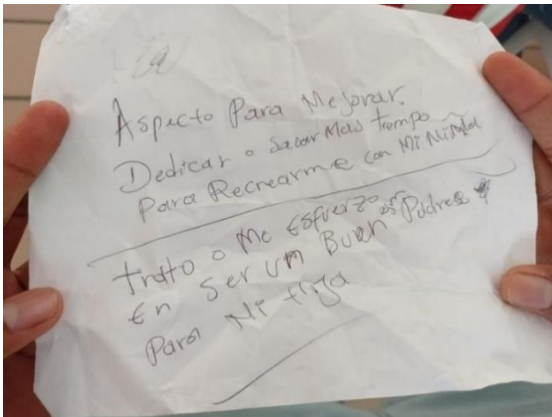 Aspecto Para Mejorar.
Dedicar o Sacar Mas tiempo
Para Recrearme con Mi Niña
Trato o Me Esfuerzo
En Ser um Buen Padres
Para Mi Hija